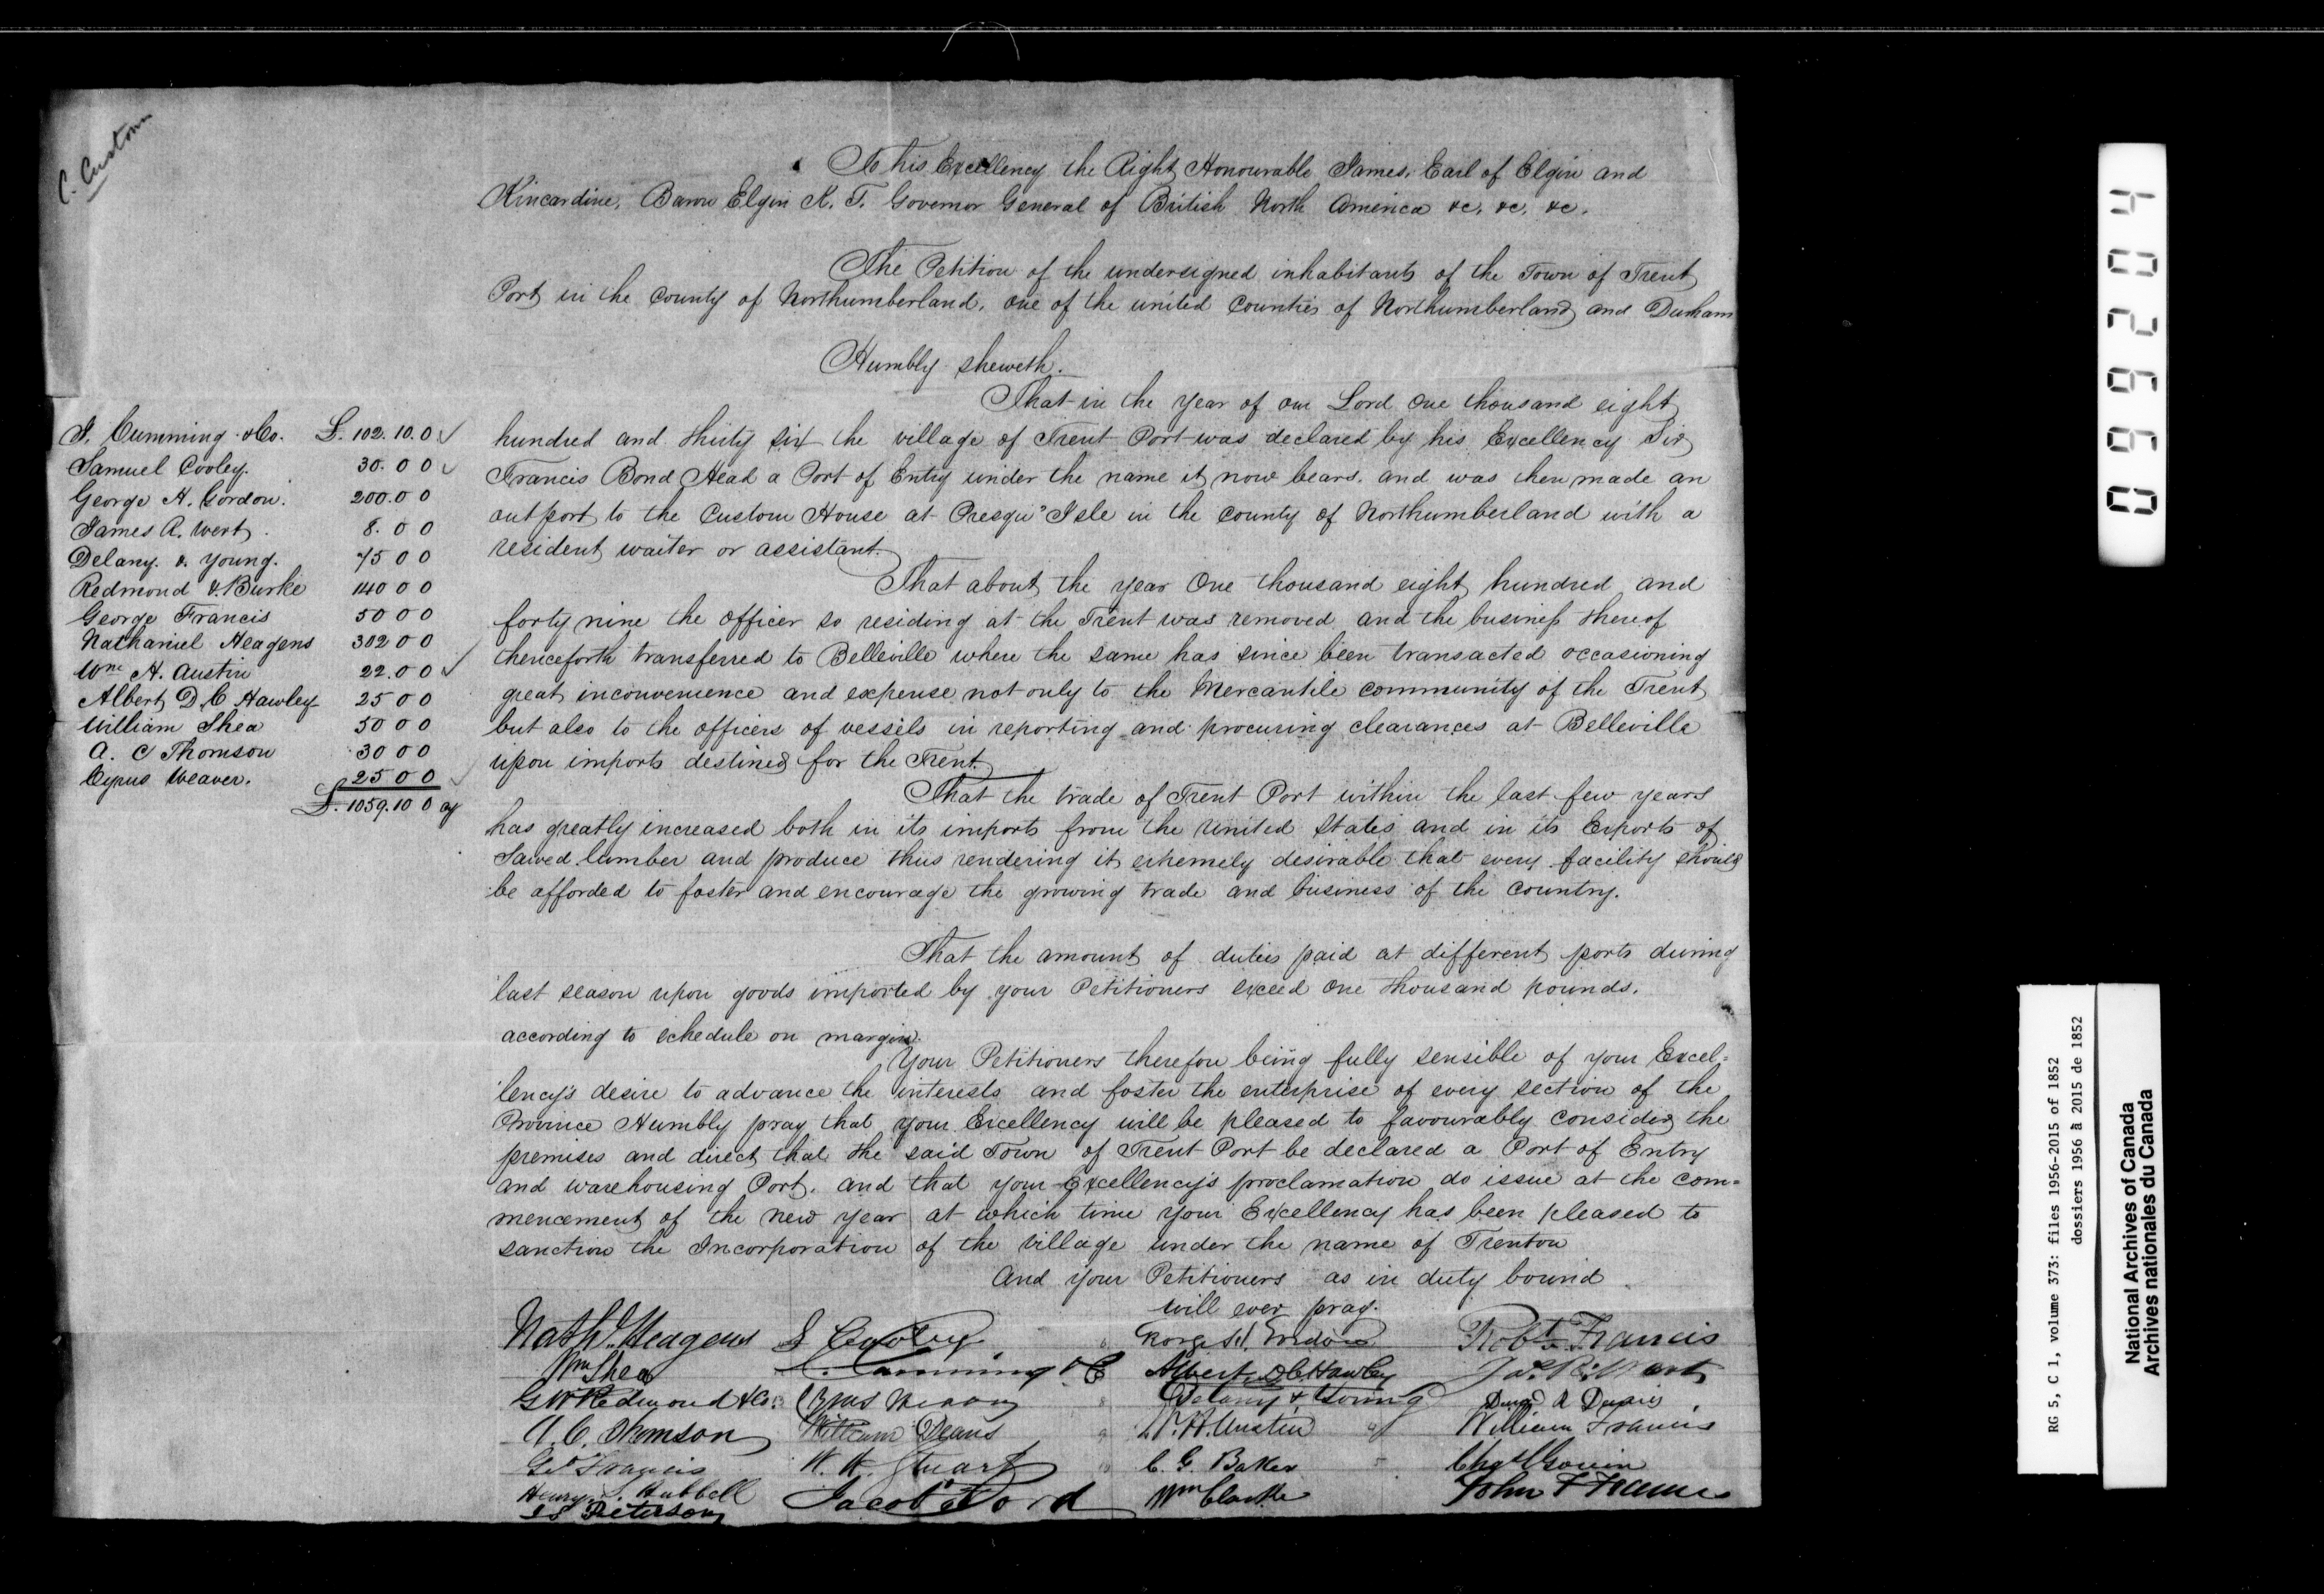 C. Custom
To his Excellency the Right Honourable James, Earl of Elgin and
Kincardine, Baron Elgin K. T. Governor General of British North America &c. &c. &c.
The Petition of the undersigned inhabitants of the Town of Trent
Port in the County of Northumberland, one of the united Counties of Northumberland and Durham
Humbly sheweth.
That in the year of our Lord One thousand eight
hundred and thirty six the village of Trent Port was declared by his Excellency Sir
Francis Bond Head a Port of Entry under the name it now bears, and was then made an
outport to the Custom House at Presqu' Isle in the County of Northumberland with a
resident waiter or assistant.
That about the year One thousand eight hundred and
forty nine the officer so residing at the Trent was removed and the business thereof
thenceforth transferred to Belleville where the same has since been transacted occasioning
great inconvenience and expense not only to the Mercantile community of the Trent
but also to the officers of vessels in reporting and procuring clearances at Belleville
upon imports destined for the Trent.
That the trade of Trent Port within the last few years
has greatly increased both in its imports from the United States and in its Exports of
Sawed lumber and produce thus rendering it extremely desirable that every facility should
be afforded to foster and encourage the growing trade and business of the country.
That the amount of duties paid at different ports during
last season upon goods imported by your Petitioners exceed One thousand pounds.
according to schedule on margin.
Your Petitioners therefore being fully sensible of your Excel=
lency's desire to advance the interests and foster the enterprise of every section of the
Province Humbly pray that your Excellency will be pleased to favourably consider the
premises and direct that the said Town of Trent Port be declared a Port of Entry
and warehousing Port, and that your Excellency's proclamation do issue at the com=
mencement of the new year at which time your Excellency has been pleased to
sanction the Incorporation of the village under the name of Trenton
And your Petitioners as in duty bound
will ever pray.
J. Cumming & Co. £. 102. 10. 0
Samuel Cooley. 30. 0 0
George H. Gordon. 200. 0 0
James R. Wert. 8. 0 0
Delany & Young. 75 0 0
Redmond & Burke 140 0 0
George Francis 50 0 0
Nathaniel Heagens 302 0 0
Wm H. Austin 22. 0 0
Albert D. C Hawley 25 0 0
William Shea 50 0 0
A. C Thomson 30 0 0
Cyrus Weaver. 25 0 0
£. 1059. 10 0 cy
Nathl. Heagens S Cooley George H. Gordon Robt Francis
Wm Shea Cumming & Co Albert D C Hawley Jas R. Wert
G W Redmond & Co. Cyrus Weaver Delany & Young
A. C. Thomson William Deans W. H. Austin William Francis
Geo Francis W. W. Stuart C. G. Baker Chas
Henry S. Hubbell Jacob Ford Wm Clarke John F Francis
Peterson
099204
RG 5, C 1, volume 373: files 1956-2015 of 1852
dossiers 1956 à 2015 de 1852
National Archives of Canada
Archives nationales du Canada